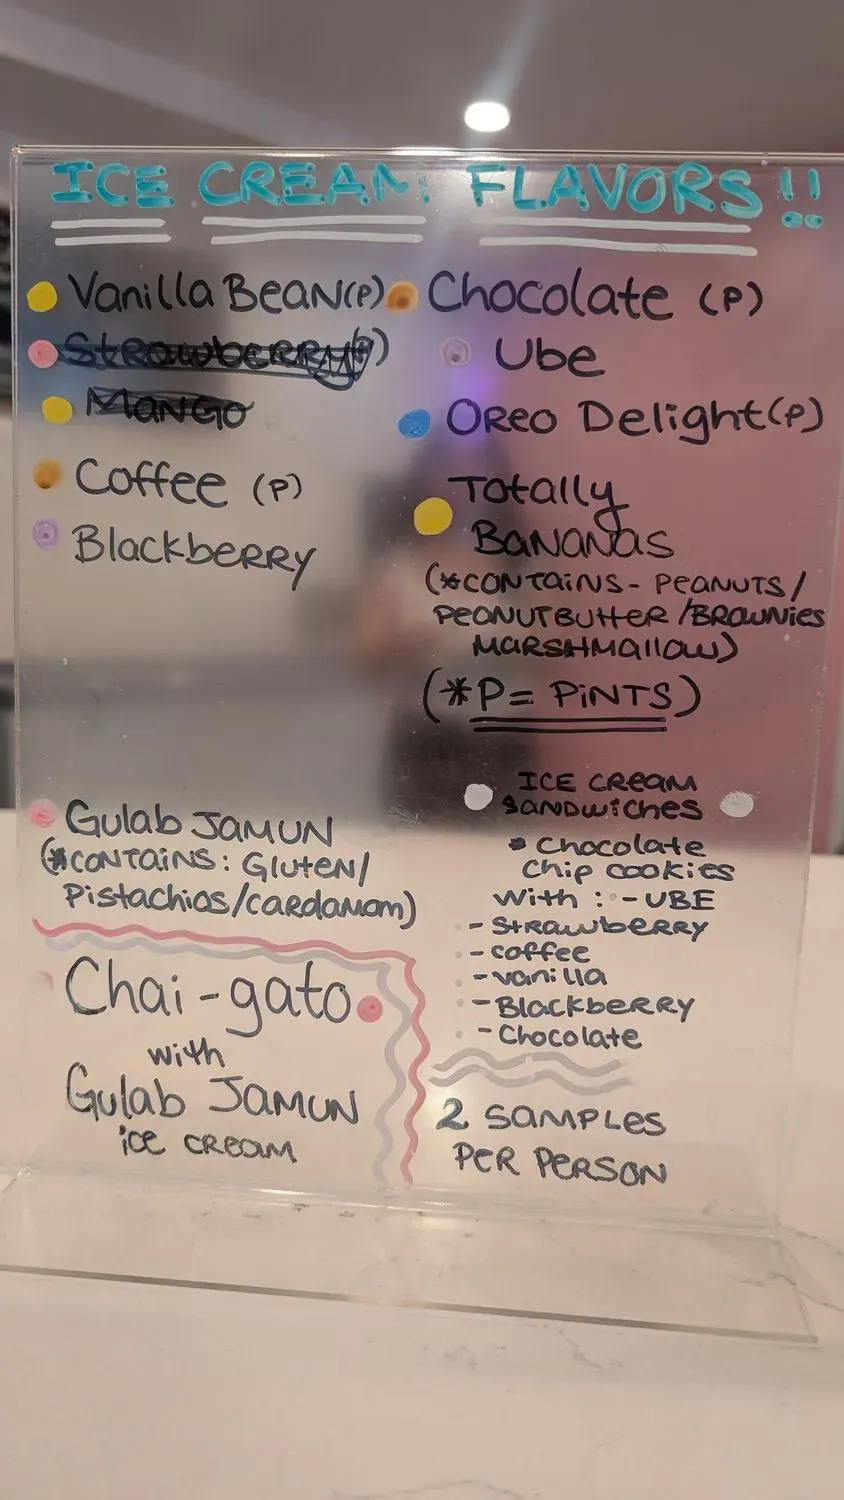 ICE CREAM FLAVORS!!
Vanilla Bean(P)
Strawberry(P)
Mango
Coffee (P)
Blackberry
Chocolate (P)
Ube
Oreo Delight(P)
Totally
Bananas
(*Contains- Peanuts/
Peanutbutter/Brownies
Marshmallow)
(*P= Pints)
Gulab Jamun
(*Contains: Gluten/
Pistachios/cardamom)
Chai-gato
with
Gulab Jamun
ice cream
Ice Cream
Sandwiches
* Chocolate
Chip cookies
with : - UBE
- Strawberry
- coffee
- vanilla
- Blackberry
- Chocolate
2 Samples
Per Person